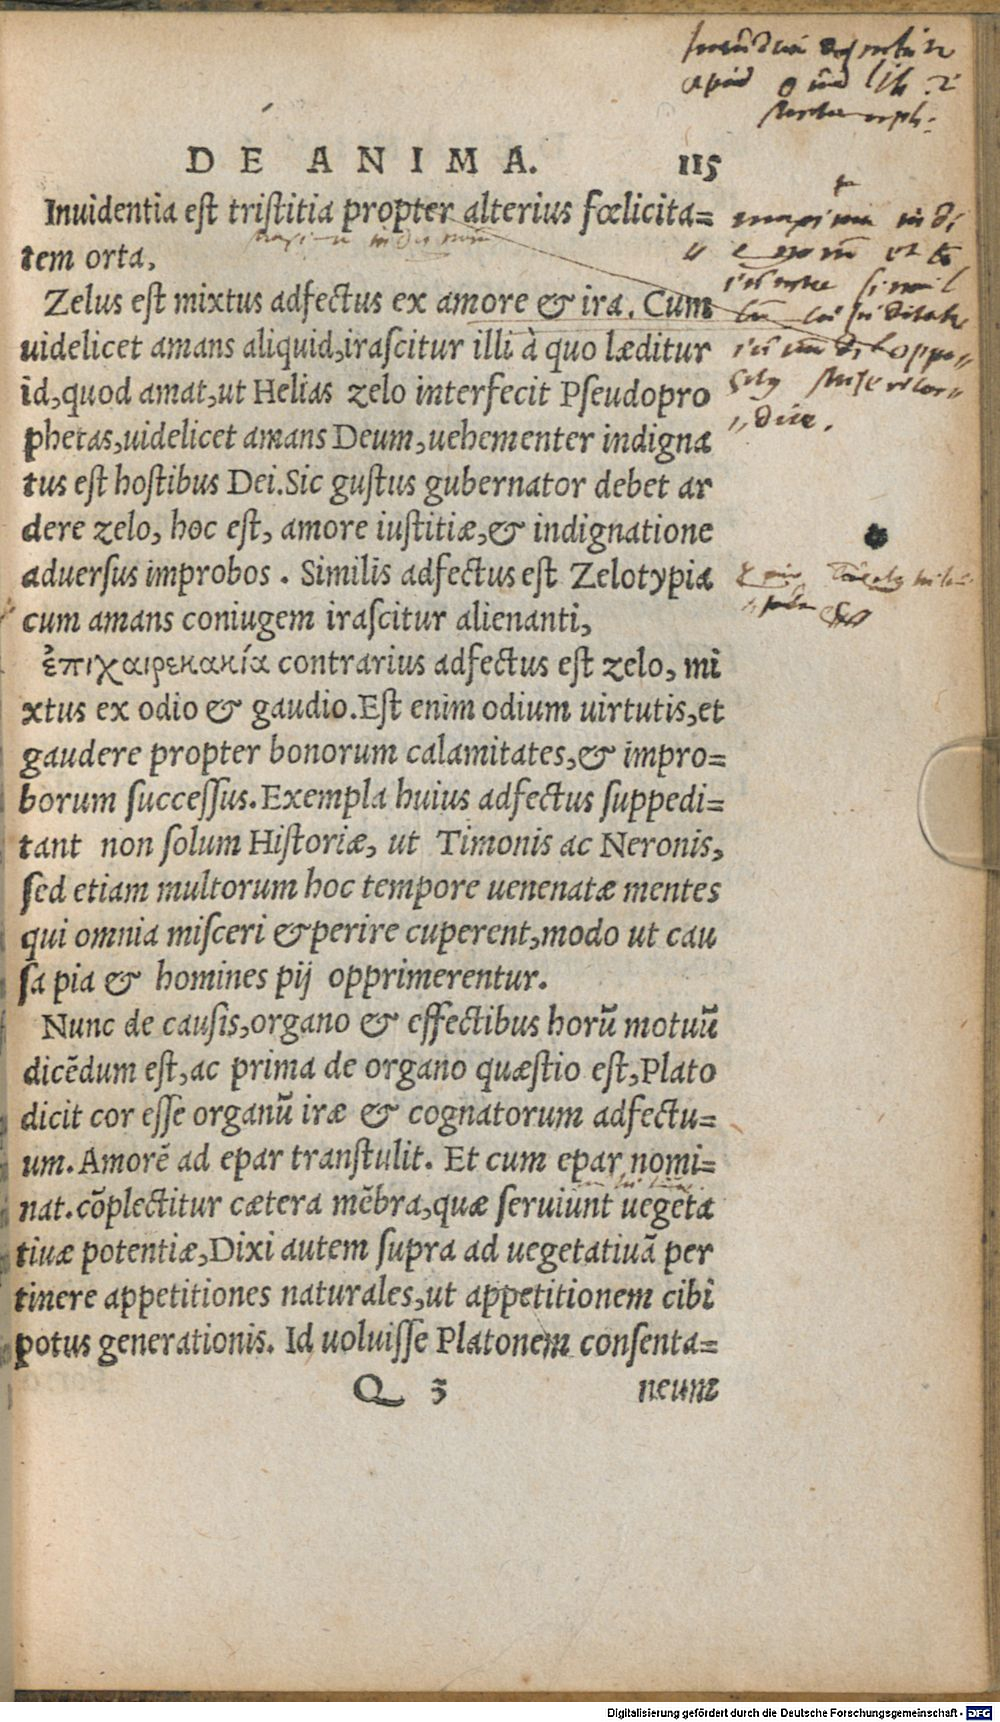 apud
lib. 2
DE ANIMA. 115
Inuidentia est tristitia propter alterius fœlicita=
tem orta,
Zelus est mixtus adfectus ex amore & ira. Cum
uidelicet amans aliquid,irascitur illi à quo læditur
id,quod amat,ut Helias zelo interfecit Pseudopro
phetas,uidelicet amans Deum,uehementer indigna
tus est hostibus Dei.Sic gustus gubernator debet ar
dere zelo, hoc est, amore iustitiæ,& indignatione
aduersus improbos . Similis adfectus est Zelotypia
cum amans coniugem irascitur alienanti,
ἐπιχαιρεκακία contrarius adfectus est zelo, mi
xtus ex odio & gaudio.Est enim odium uirtutis,et
gaudere propter bonorum calamitates,& impro=
borum successus.Exempla huius adfectus suppedi=
tant non solum Historiæ, ut Timonis ac Neronis,
sed etiam multorum hoc tempore uenenatæ mentes
qui omnia misceri & perire cuperent,modo ut cau
sa pia & homines pij opprimerentur.
Nunc de causis,organo & effectibus horũ motuũ
dicẽdum est,ac prima de organo quæstio est,Plato
dicit cor esse organũ iræ & cognatorum adfectu=
um.Amorẽ ad epar transtulit. Et cum epar nomi=
nat.cõplectitur cætera mẽbra,quæ seruiunt uegeta
tiuæ potentiæ,Dixi autem supra ad uegetatiuã per
tinere appetitiones naturales,ut appetitionem cibi
potus generationis. Id uoluisse Platonem consenta=
Q 3 neum
Digitalisierung gefördert durch die Deutsche Forschungsgemeinschaft - DFG